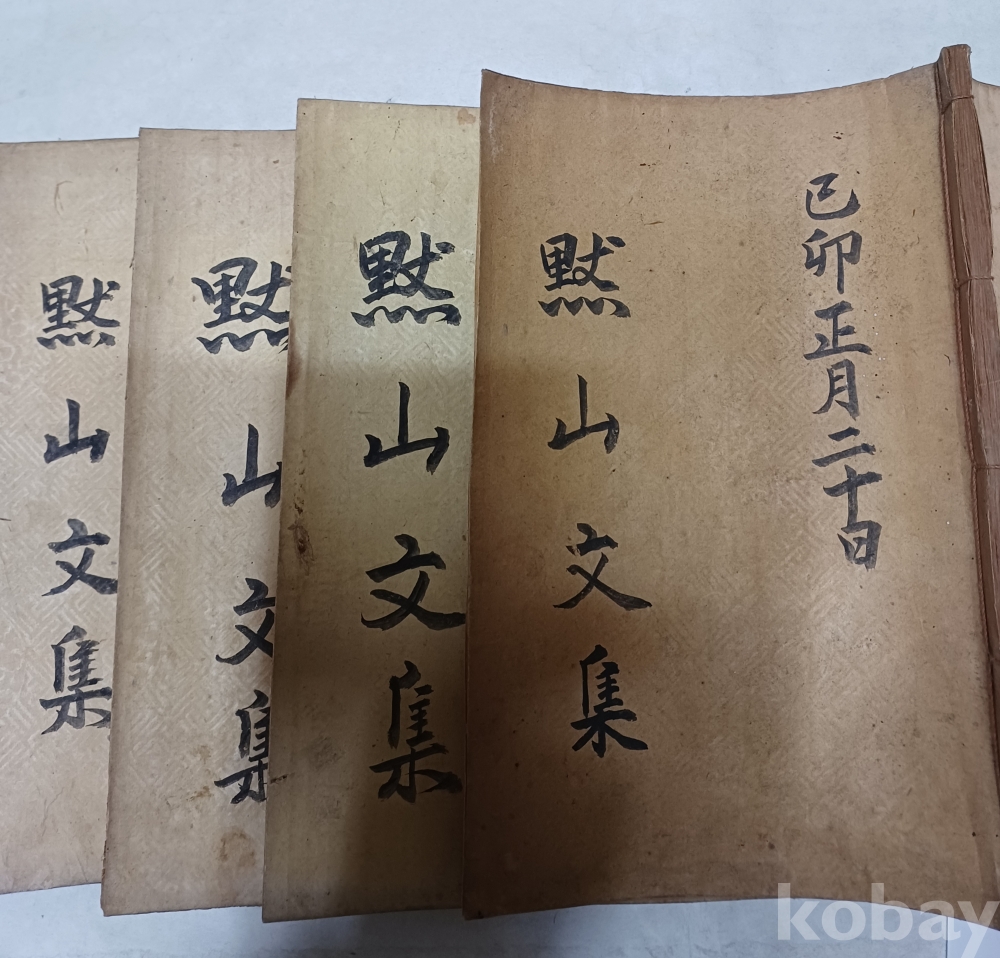 己卯正月二十日
黙山文集
黙山文集
黙山文集
黙山文集
kobay